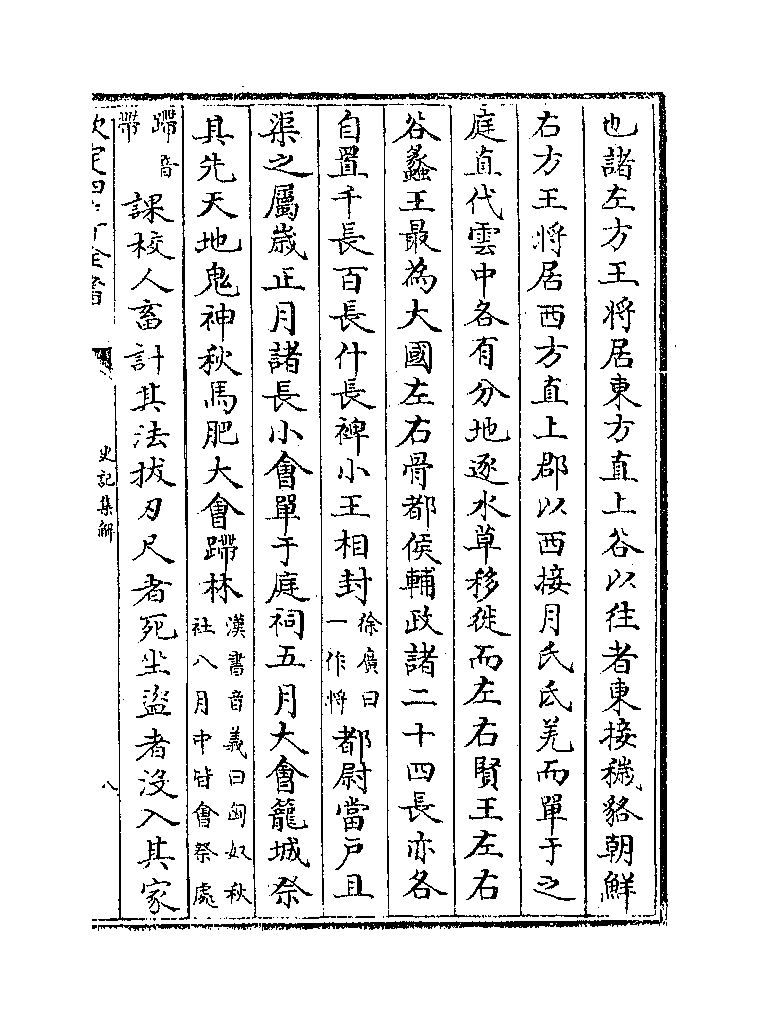 也諸左方王將居東方直上谷以往者東接穢貉朝鮮
右方王將居西方直上郡以西接月氏氐羌而單于之
庭直代雲中各有分地逐水草移徙而左右賢王左右
谷蠡王最為大國左右骨都侯輔政諸二十四長亦各
自置千長百長什長裨小王相封徐廣曰一作將都尉當户且
渠之屬歲正月諸長小會單于庭祠五月大會籠城祭
其先天地鬼神秋馬肥大會蹛林漢書音義曰匈奴秋社八月中皆會祭處
蹛音帶課校人畜計其法拔刃尺者死坐盜者沒入其家
欽定四庫全書
史記集解
八